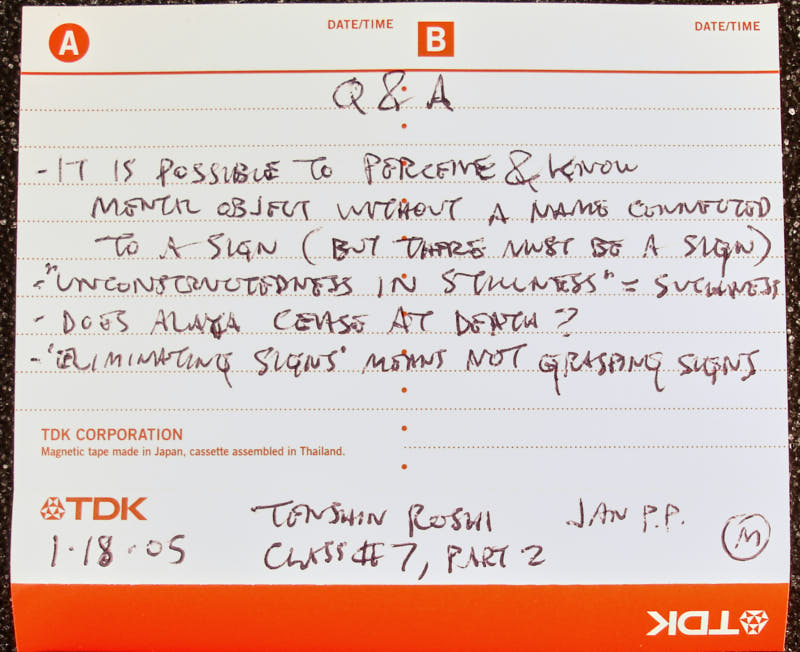 A
DATE/TIME
B
DATE/TIME
Q & A
- IT IS POSSIBLE TO PERCEIVE & KNOW
MENTAL OBJECT WITHOUT A NAME CONNECTED
TO A SIGN (BUT THERE MUST BE A SIGN)
- "UNCONSTRUCTEDNESS IN STILLNESS" = SUCHNESS
- DOES ALAYA CEASE AT DEATH?
- 'ELIMINATING SIGNS' MEANS NOT GRASPING SIGNS
TDK CORPORATION
Magnetic tape made in Japan, cassette assembled in Thailand.
TDK
TENSHIN ROSHI JAN P.P.
1.18.05 CLASS #7, PART 2
M
TDK